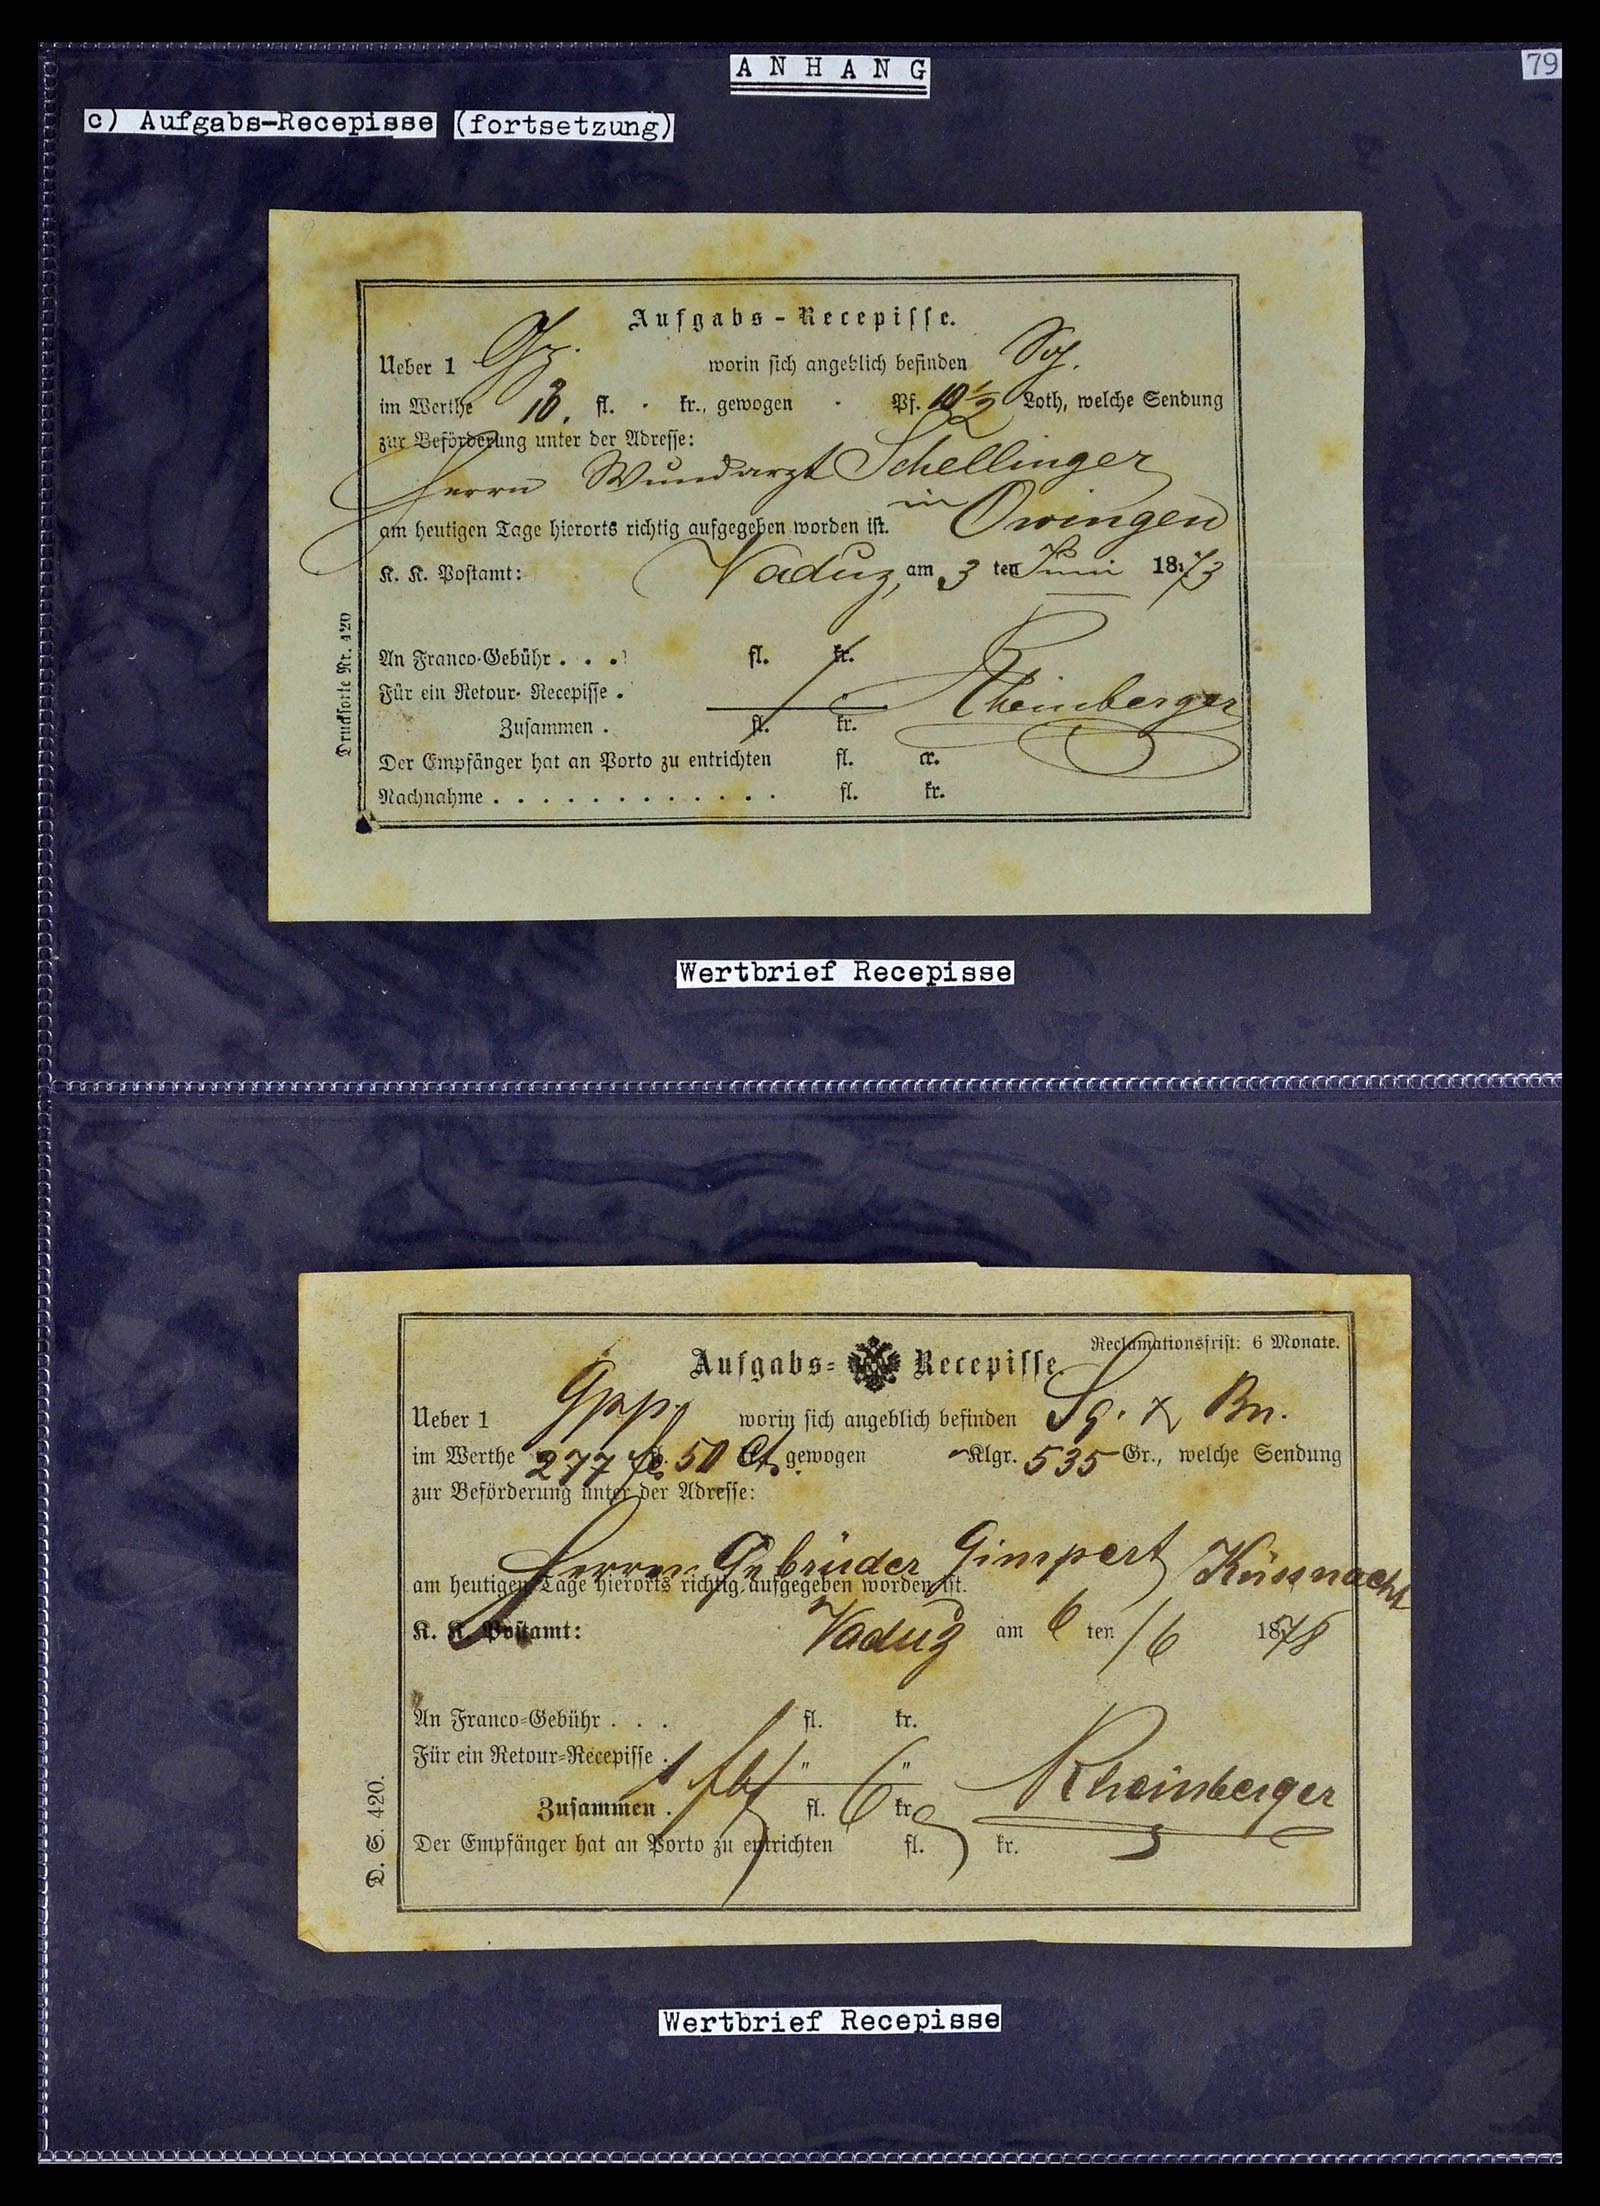 ANHANG
79
c) Aufgabs-Recepisse (fortsetzung)
Aufgabs-Recepisse.
Ueber 1 worin sich angeblich befinden
im Werthe fl. kr., gewogen Pf. 10 ½ Loth, welche Sendung
zur Beförderung unter der Adresse:
Herrn Wundarzt Schellinger
in Owingen
am heutigen Tage hierorts richtig aufgegeben worden ist.
K. K. Postamt: Vaduz, am 3 ten Juni 1873
An Franco-Gebühr . . . fl. kr.
Für ein Retour-Recepisse .
Rheinberger
Zusammen . fl. kr.
Der Empfänger hat an Porto zu entrichten fl. cr.
Nachnahme . . . . . . . . . . . . . fl. kr.
Drucksorte Nr. 420
Wertbrief Recepisse
Reclamationsfrist: 6 Monate.
Aufgabs- Recepisse
Ueber 1 worin sich angeblich befinden
im Werthe 277 fl. 50 Ct. gewogen Klgr. 535 Gr., welche Sendung
zur Beförderung unter der Adresse:
Herren Gebrüder Gimpert Küssnacht
am heutigen Tage hierorts richtig aufgegeben worden ist.
K. K. Postamt: Vaduz am 6 ten /6 1878
An Franco-Gebühr . . . fl. kr.
Für ein Retour-Recepisse . " "
Rheinberger
Zusammen . fl. 6 kr
Der Empfänger hat an Porto zu entrichten fl. kr.
D. S. 420.
Wertbrief Recepisse